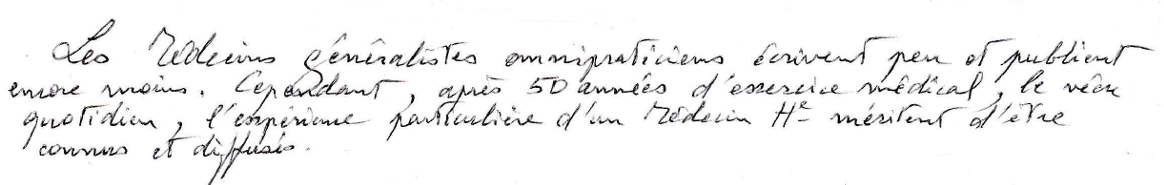 Les Médecins généralistes omnipraticiens écrivent peu et publient
encore moins. Cependant, après 50 années d'exercice médical, le vécu
quotidien, l'expérience particulière d'un Médecin He méritent d'être
connus et diffusés.